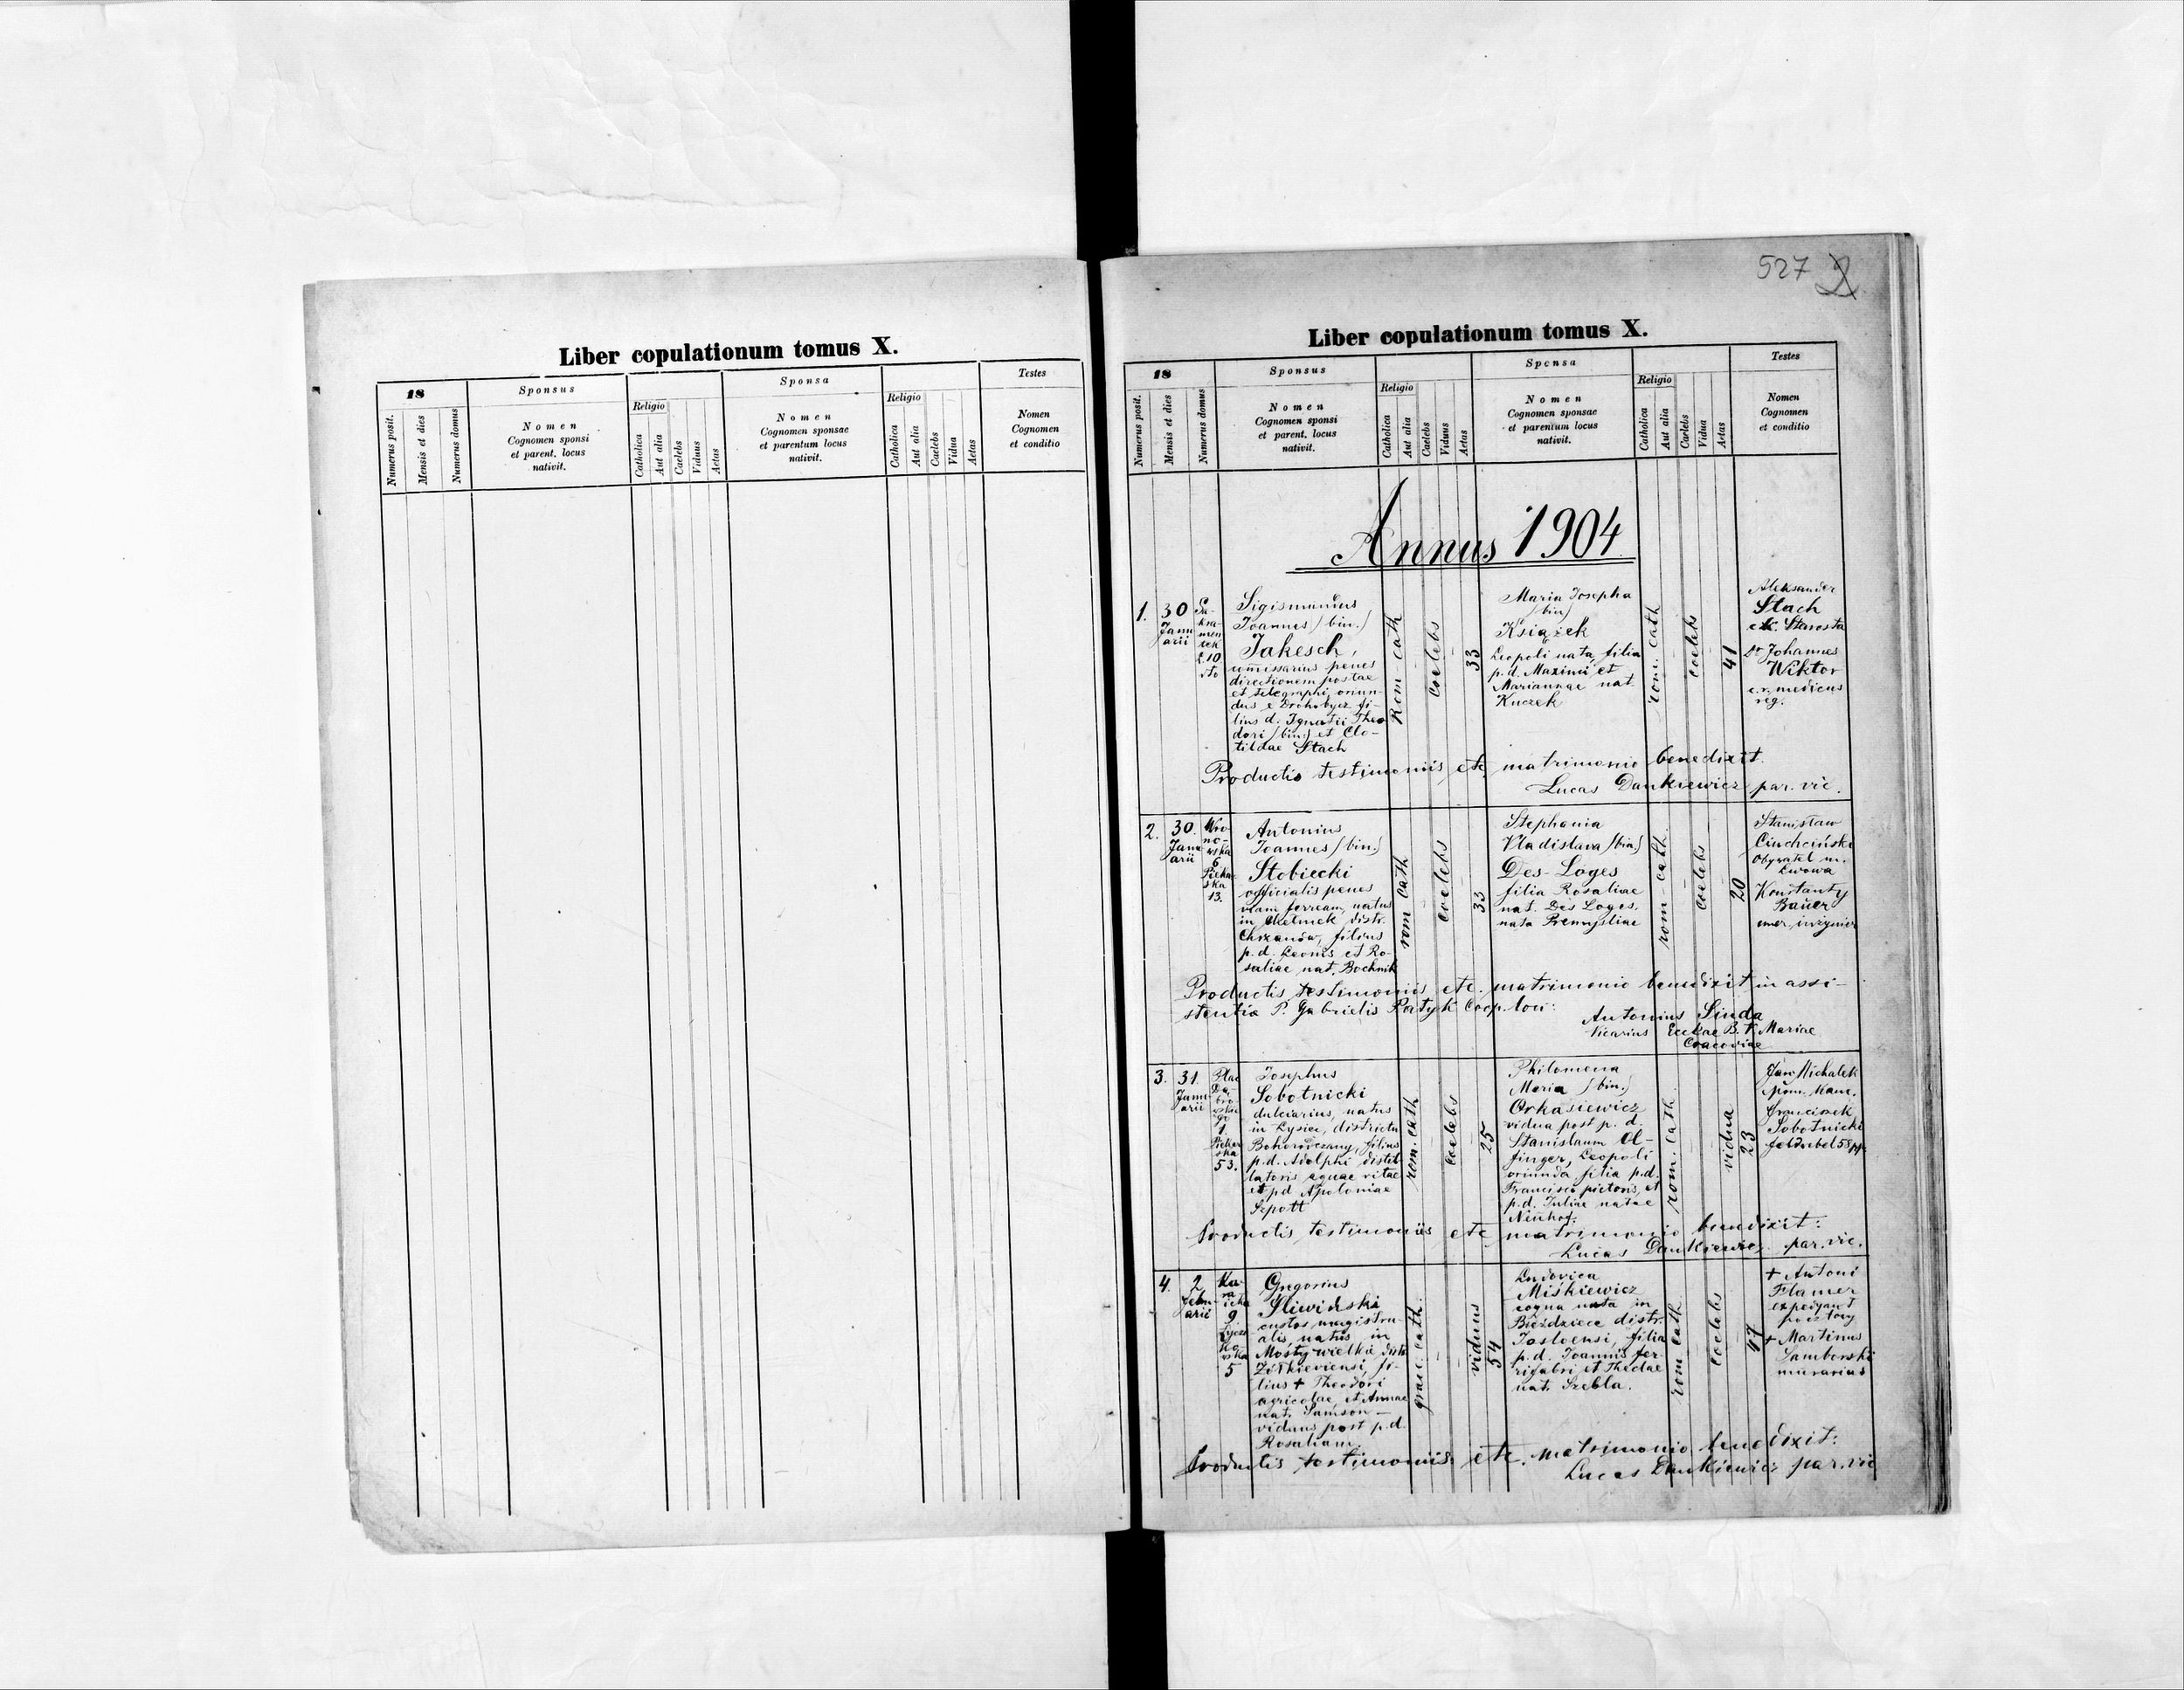 Liber copulationum tomus X.
18
Sponsus
Sponsa
Testes
Numerus posit.
Mensis et dies
Numerus domus
Nomen
Cognomen sponsi
et parent. locus
nativit.
Religio
Catholica
Aut alia
Caelebs
Viduus
Aetas
Nomen
Cognomen sponsae
et parentum locus
nativit.
Religio
Catholica
Aut alia
Caelebs
Vidua
Aetas
Nomen
Cognomen
et conditio
527 2
Liber copulationum tomus X.
18
Sponsus
Sponsa
Testes
Numerus posit.
Mensis et dies
Numerus domus
Nomen
Cognomen sponsi
et parent. locus
nativit.
Religio
Catholica
Aut alia
Caelebs
Viduus
Aetas
Nomen
Cognomen sponsae
et parentum locus
nativit.
Religio
Catholica
Aut alia
Caelebs
Vidua
Aetas
Nomen
Cognomen
et conditio
Annus 1904
1.
30
Janu
arii
Sa-
kra-
men
tek
l. 10
Sigismundus
Joannes (bin.)
Jakesch,
commissarius penes
directionem postae
et telegraphi, oriun-
dus e Drohobycz fi-
lius d. Ignatii Theo
dori (bin.) et Clo-
tildae Stach
Rom. cath
coelebs
33
Maria Josepha
(bin)
Książek
Leopoli nata, filia
p.d. Maximi et
Mariannae nat.
Kuczek
rom. cath
coelebs
41
Aleksander
Stach
ck. Starosta
Dr Johannes
Wiktor
c.r. medicus
reg.
Productis testimoniis etc matrimonio benedixit.
Lucas Dankiewicz par. vic.
2.
30.
Janu
arii
Wro-
no-
wska
6
Pieka
ska
13.
Antonius
Joannes (bin.)
Stobiecki
officialis penes
viam ferream, natus
in Chełmek, distr.
Chrzanów, filius
p.d. Leonis et Ro-
saliae nat. Bochnik
rom cath
coelebs
33
Stephania
Vladislava (bin.)
Des-Loges
filia Rosaliae
nat. Des Loges,
nata Premysliae
rom-cath.
coelebs
20
Stanisław
Ciuchciński
Obywatel m.
Lwowa
Konstanty
Bauer
emer. inżynier
Productis testimoniis etc. matrimonio benedixit in assi-
stentia P. Gabrielis Partyk Coop. loci:
Antonius Sinda
Vicarius Ecclae B. V. Mariae
Cracoviae
3.
31.
Janu
arii
Plac
Dą-
bro-
wskie
go
1.
Piekar
ska
53.
Josephus
Sobotnicki
dulciarius, natus
in Łysiec, districtu
Bohorodczany, filius
p.d. Adolphi distil
latoris aquae vitae
et pd Apoloniae
Szpott
rom. cath
coelebs
25
Philomena
Maria (bin.)
Orkasiewicz
vidua post p. d.
Stanislaum Ol-
finger, Leopoli
oriunda filia p.d.
Francisci pictoris, et
p.d. Juliae natae
Neuhof.
rom. cath
vidua
23
Jan Michałek
Franciszek
Sobotnicki
feldwebel 58 pp.
Productis testimoniis etc matrimonio benedixit:
Lucas Dankiewicz par. vic.
4.
2
Febru
arii
9
Łycza
ko
wska
5
Gregorius
Śliwiński
custos magistru-
alis natus in
Mosty wielkie distr
Żółkieviensi, fi-
lius + Theodori
agricolae, et Annae
nat. Samson —
viduus post p.d.
Rosaliam.
graec. cath.
viduus
54
Ludovica
Miśkiewicz
coqua nata in
Bieździece distr.
Jasloensi, filia
p.d. Joannis fer-
rifabri et Theclae
nat. Szebla.
rom cath
coelebs
47
+ Antoni
Flamer
expedyent
pocztowy
+ Martinus
Samborski
murarius
Productis testimoniis etc. matrimonio benedixit:
Lucas Dankiewicz par. vic